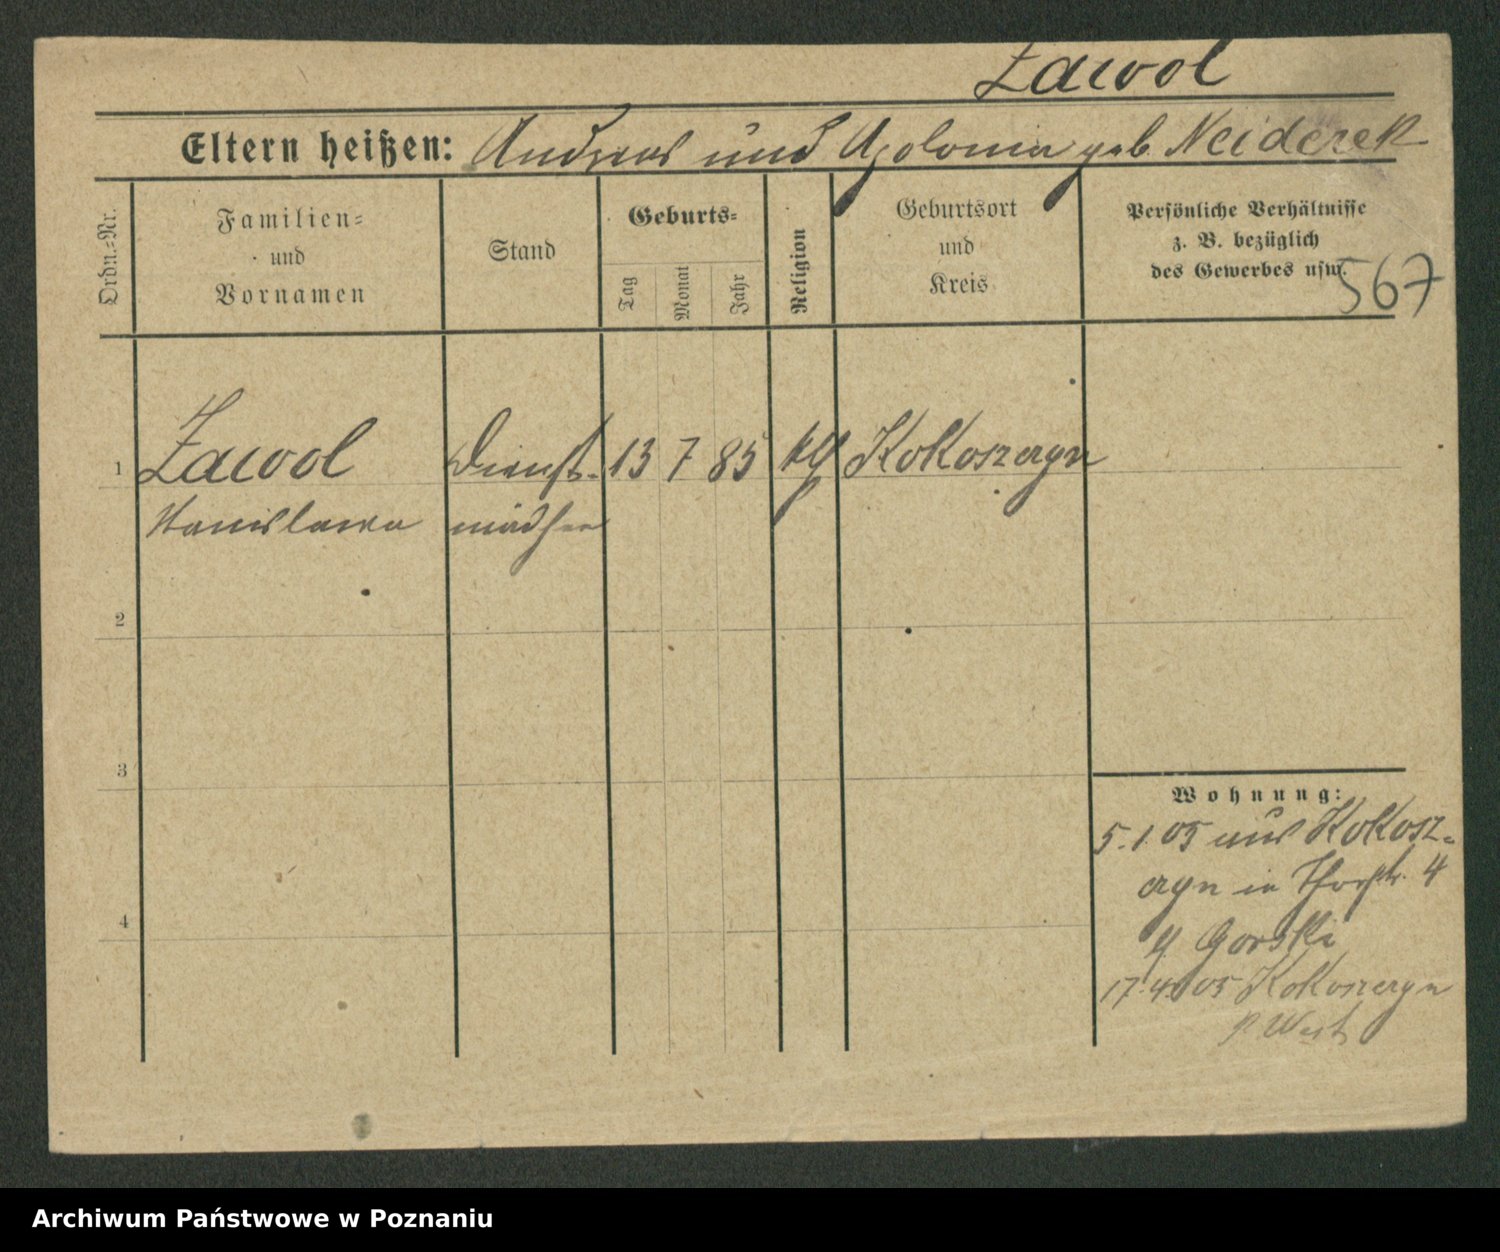 Zawol
Eltern heißen: Andreas und Apolonia geb. Neiderek
Ordn.-Nr.
Familien-
und
Vornamen
Stand
Geburts-
Tag
Monat
Jahr
Religion
Geburtsort
und
Kreis
Persönliche Verhältnisse
z. B. bezüglich
des Gewerbes usw.
567
1 Zawol Dienst- 13 7 85 kth Kokoszczyn
Stanislawa mädchen
2
3
4
Wohnung:
5.1.05 aus Kokosz-
czyn in Thorstr. 4
Gorski
17.4.05 Kokoszczyn
p. West
Archiwum Państwowe w Poznaniu